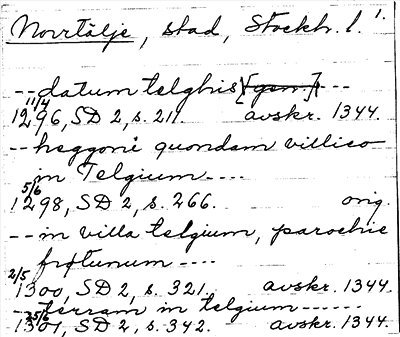 Norrtälje, stad, Stockh. l. 1.
-- datum telghis [gen.] ---
11/4 1296, SD 2, s. 211. avskr. 1344.
-- heggoni quondam villico
in Telgium ----
5/6 1298, SD 2, s. 266. orig.
-- in villa telgium, parochie
frøtunum ----
2/5 1300, SD 2, s. 321. avskr. 1344.
-- terram in telgium ------
25/6 1301, SD 2, s. 342. avskr. 1344.